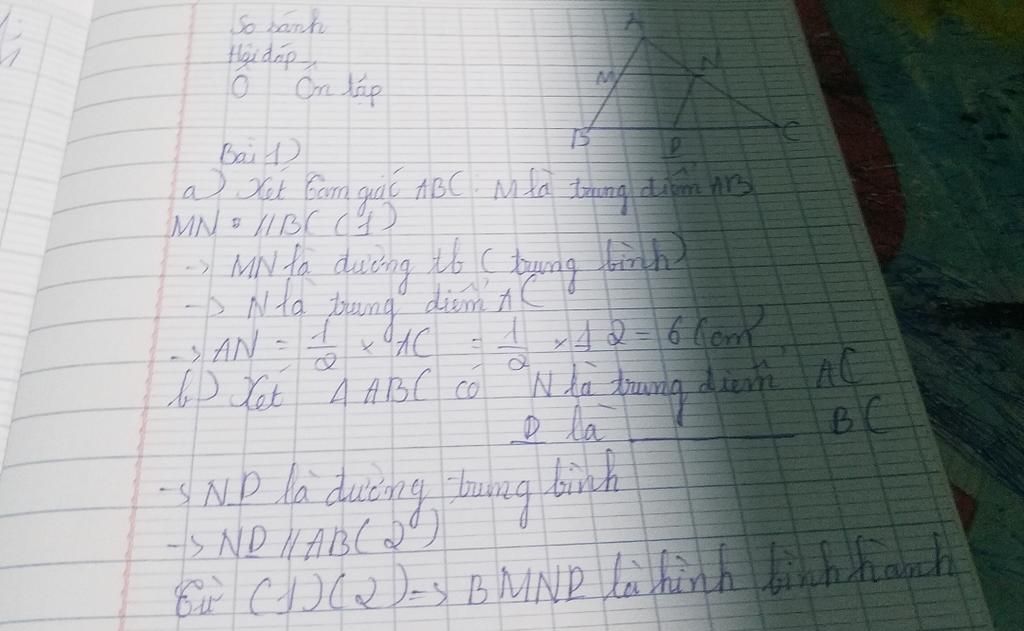 So sánh
Hỏi đáp
Ô Ôn tập
A
M N
B D C
Bài 1)
a) Xét tam giác ABC: M là trung điểm AB
MN // BC (1)
-> MN là đường tb (trung bình)
-> N là trung điểm AC
-> AN = 1/2 × AC = 1/2 × 12 = 6 (cm)
b) Xét Δ ABC có N là trung điểm AC
D là ______ BC
-> ND là đường trung bình
-> ND // AB (2)
Từ (1)(2) => BMND là hình bình hành